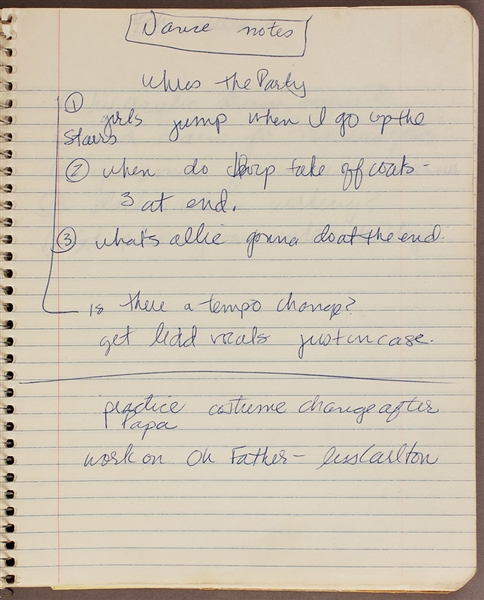 Dance notes
Where's the Party
① girls jump when I go up the
stairs
② when do take off coats -
3 at end.
③ what's allie gonna do at the end.
is there a tempo change?
get lead vocals just in case.
practice costume change after
Papa
work on Oh Father - Carlton